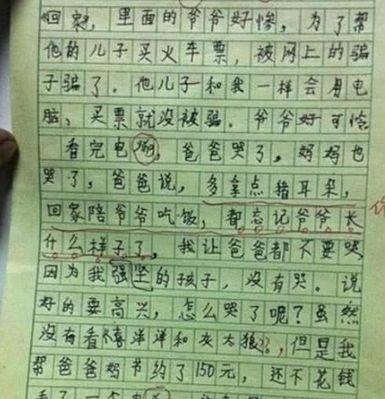 回家，里面的爷爷好惨，为了帮
他的儿子买火车票，被网上的骗
子骗了。他儿子和我一样会用电
脑，买票就没被骗。爷爷好可怜
看完电影，爸爸哭了，妈妈也
哭了，爸爸说，多拿点猪耳朵，
回家陪爷爷吃饭，都忘记爷爷长
什么样子了，我让爸爸都不要哭，
因为我强坚的孩子，没有哭。说
好的要高兴，怎么哭了呢？虽然
没有看喜洋洋和灰太狼，但是我
帮爸爸妈节约了150元，还不花钱
看了一个电